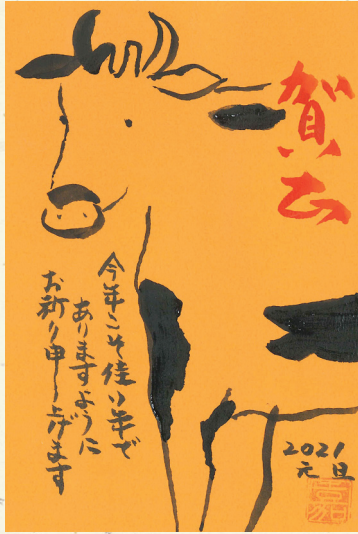 賀正
今年こそ佳い年で
ありますように
お祈り申し上げます
2021
元旦